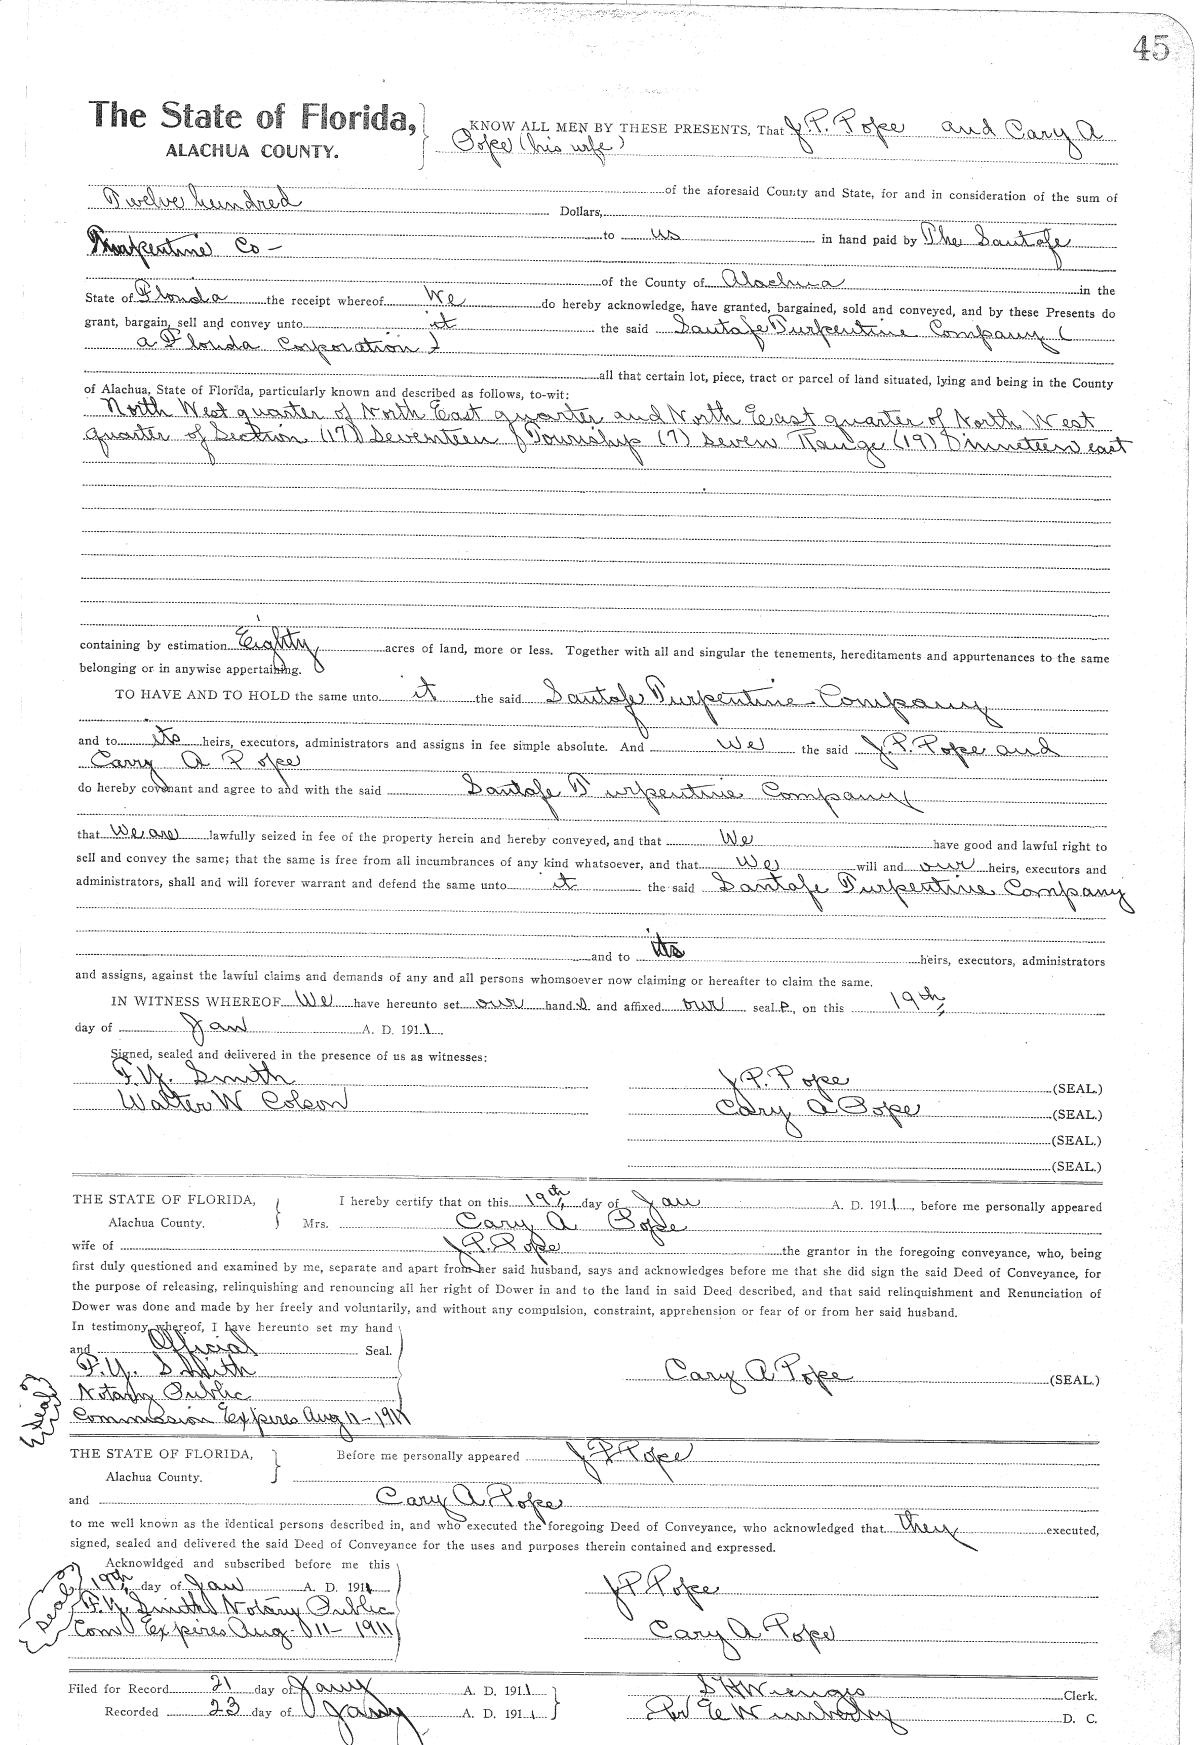 45
The State of Florida,
ALACHUA COUNTY.
KNOW ALL MEN BY THESE PRESENTS, That J. P. Pope and Cary A
Pope (his wife)
of the aforesaid County and State, for and in consideration of the sum of
Twelve hundred Dollars,
to us in hand paid by The Santafe
Turpentine Co —
of the County of Alachua in the
State of Florida the receipt whereof We do hereby acknowledge, have granted, bargained, sold and conveyed, and by these Presents do
grant, bargain, sell and convey unto it the said Santafe Turpentine Company (
a Florida Corporation)
all that certain lot, piece, tract or parcel of land situated, lying and being in the County
of Alachua, State of Florida, particularly known and described as follows, to-wit:
North West quarter of North East quarter and North East quarter of North West
quarter of Section (17) Seventeen Township (7) Seven Range (19) nineteen east
containing by estimation Eighty acres of land, more or less. Together with all and singular the tenements, hereditaments and appurtenances to the same
belonging or in anywise appertaining.
TO HAVE AND TO HOLD the same unto it the said Santafe Turpentine Company
and to its heirs, executors, administrators and assigns in fee simple absolute. And we the said J. P. Pope and
Carry A Pope
do hereby covenant and agree to and with the said Santafe Turpentine Company
that we are lawfully seized in fee of the property herein and hereby conveyed, and that We have good and lawful right to
sell and convey the same; that the same is free from all incumbrances of any kind whatsoever, and that We will and our heirs, executors and
administrators, shall and will forever warrant and defend the same unto it the said Santafe Turpentine Company
and to its heirs, executors, administrators
and assigns, against the lawful claims and demands of any and all persons whomsoever now claiming or hereafter to claim the same.
IN WITNESS WHEREOF We have hereunto set our hands and affixed our seals, on this 19th,
day of Jan A. D. 1911.
Signed, sealed and delivered in the presence of us as witnesses:
F. Y. Smith
Walter W Colson
J P. Pope (SEAL.)
Cary A Pope (SEAL.)
(SEAL.)
(SEAL.)
THE STATE OF FLORIDA,
Alachua County.
I hereby certify that on this 19th day of Jan A. D. 1911, before me personally appeared
Mrs. Cary A Pope
wife of J. P. Pope the grantor in the foregoing conveyance, who, being
first duly questioned and examined by me, separate and apart from her said husband, says and acknowledges before me that she did sign the said Deed of Conveyance, for
the purpose of releasing, relinquishing and renouncing all her right of Dower in and to the land in said Deed described, and that said relinquishment and Renunciation of
Dower was done and made by her freely and voluntarily, and without any compulsion, constraint, apprehension or fear of or from her said husband.
In testimony whereof, I have hereunto set my hand
and Official Seal.
F. Y. Smith
Notary Public
Commission Expires Aug 11 - 1911
(Seal)
Cary A Pope (SEAL.)
THE STATE OF FLORIDA,
Alachua County.
Before me personally appeared J P Pope
and Cary A. Pope
to me well known as the identical persons described in, and who executed the foregoing Deed of Conveyance, who acknowledged that they executed,
signed, sealed and delivered the said Deed of Conveyance for the uses and purposes therein contained and expressed.
Acknowldged and subscribed before me this
19th, day of Jan A. D. 1911
F. Y. Smith Notary Public
Com Expires Aug - 11 - 1911
(Seal)
J P Pope
Cary A Pope
Filed for Record 21 day of Jany A. D. 1911
Recorded 23 day of Jany A. D. 1911
S H Wienges Clerk.
Per E W Wimberly D. C.